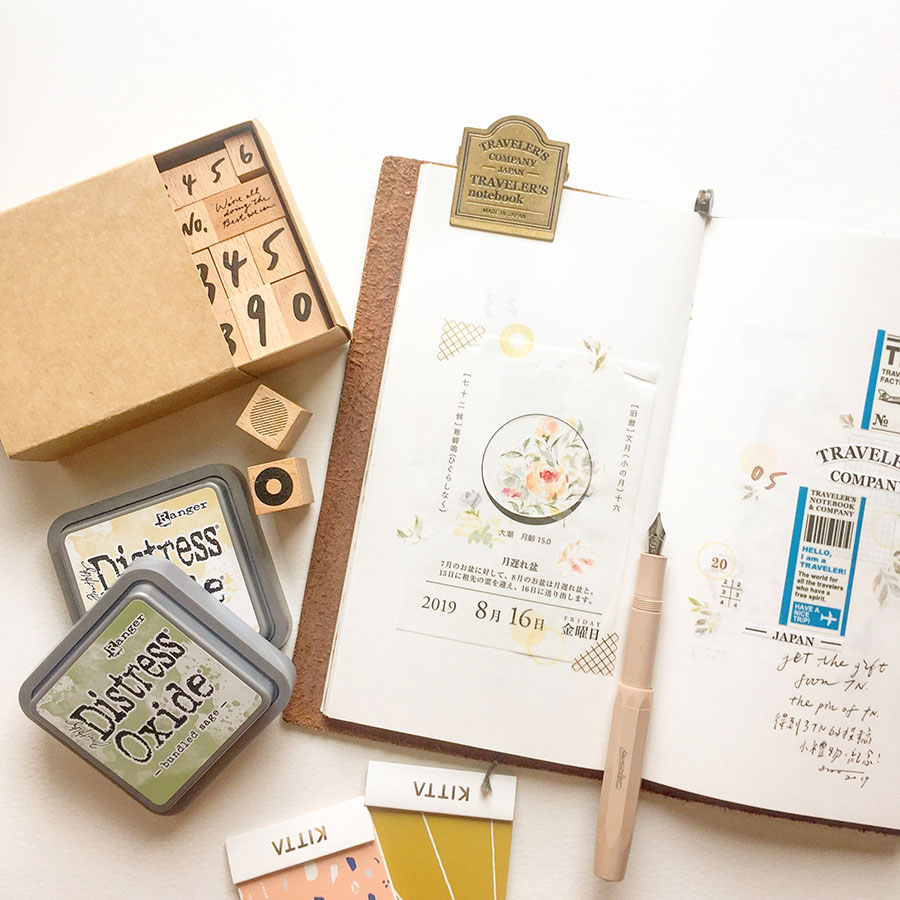 6
4 5
No.
We're all
doing the
Best we can
3 4 5
3 9 0
Ranger
Distress
Ranger
Distress
Oxide
- bundled sage -
KITTA
KITTA
TRAVELER'S
COMPANY
JAPAN
TRAVELER'S
notebook
MADE IN JAPAN
[七十二候] 寒蝉鳴 (ひぐらしなく)
[旧暦] 文月 (小の月) 十六
No.
大潮 月齢 15.0
月遅れ盆
7月のお盆に対して、8月のお盆は月遅れ盆と。
13日に祖先の霊を迎え、16日に送り出します。
2019 8月16日 FRIDAY 金曜日
№
05
TRAVELER'S
TRAVELER'S
NOTEBOOK
& COMPANY
HELLO,
I am a
TRAVELER!
The world for
all the travelers
who have a
free spirit.
HAVE A
NICE
TRIP!
20
2 2
3 3
4 4
JAPAN
get the gift
soon TN.
the pin of TN.
2019